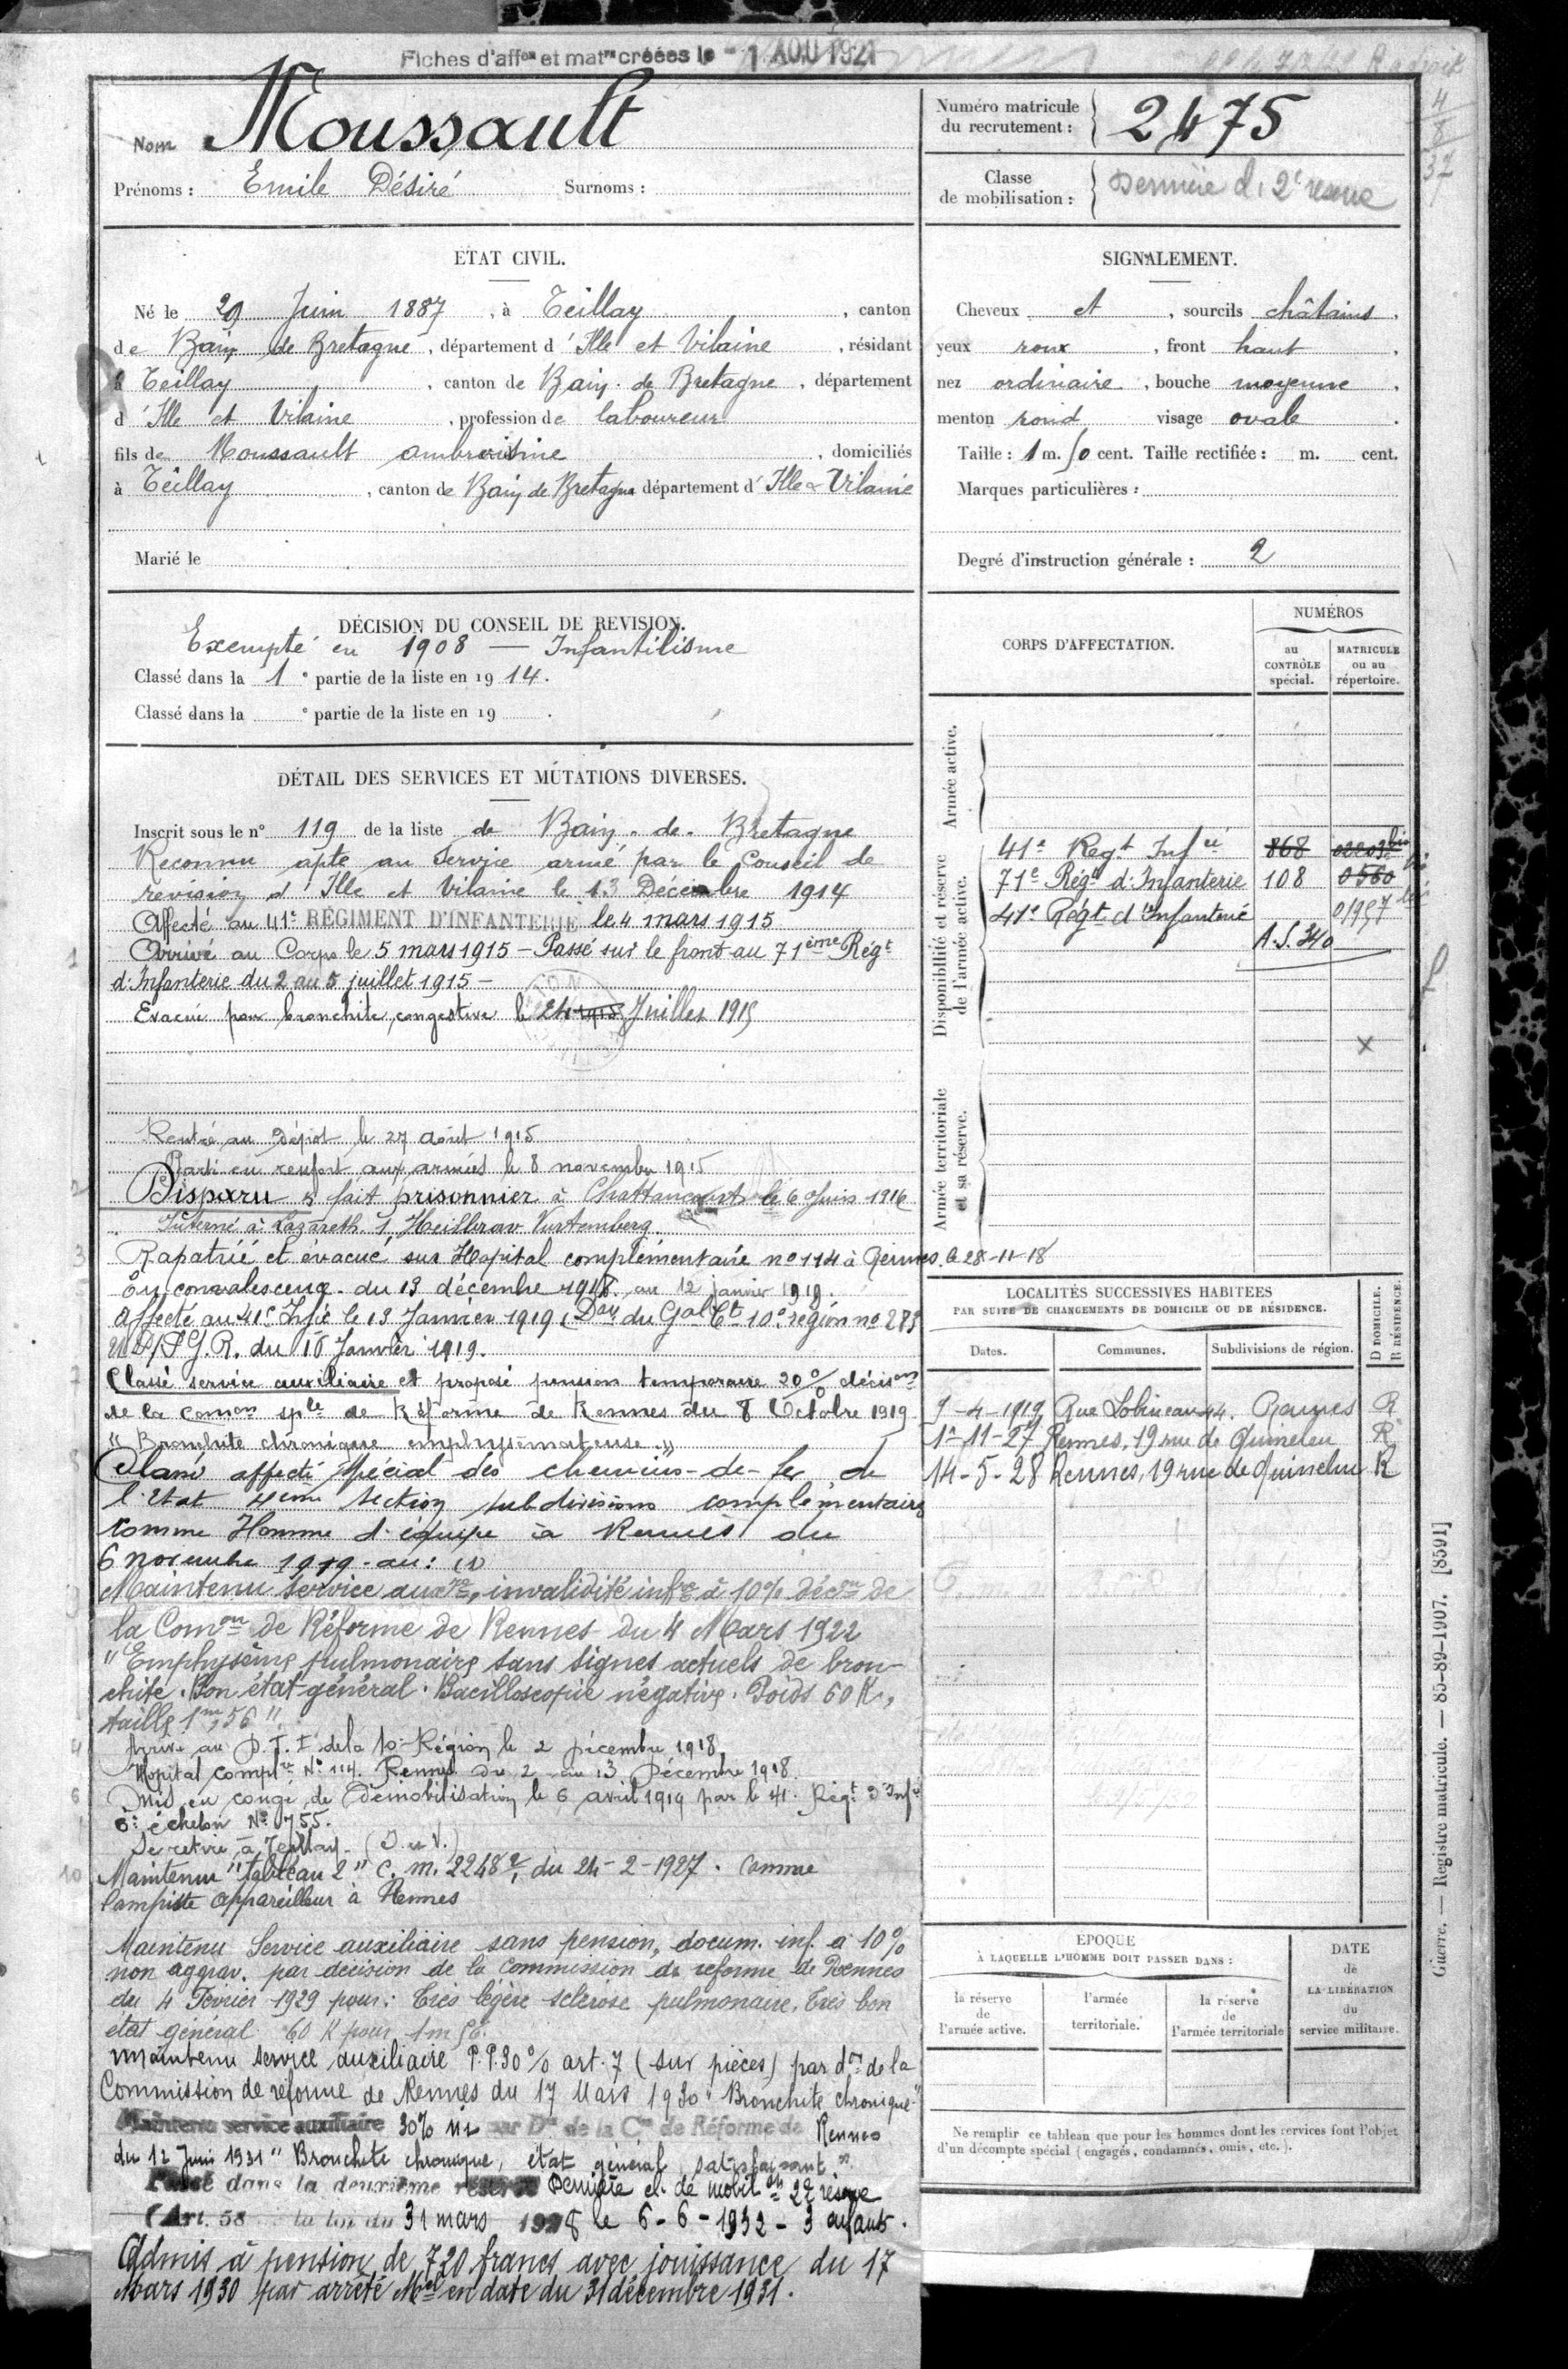 Fiches d'affon et matre créées le - 1 AOU 1921
Nom Moussault
Prénoms : Emile Désiré Surnoms :
Numéro matricule du recrutement : 2475
Classe de mobilisation : Dernière d. 2e reserve
ÉTAT CIVIL.
Né le 29 Juin 1887, à Teillay, canton
de Bain de Bretagne, département d'Ille et Vilaine, résidant
à Teillay, canton de Bain de Bretagne, département
d'Ille et Vilaine, profession de laboureur
fils de Moussault ambroisine, domiciliés
à Teillay, canton de Bain de Bretagne département d'Ille & Vilaine
Marié le
SIGNALEMENT.
Cheveux et, sourcils châtains,
yeux roux, front haut,
nez ordinaire, bouche moyenne,
menton rond visage ovale.
Taille : 1 m. 50 cent. Taille rectifiée : m. cent.
Marques particulières :
Degré d'instruction générale : 2
DÉCISION DU CONSEIL DE REVISION.
Exempté en 1908 — Infantilisme
Classé dans la 1e partie de la liste en 1914.
Classé dans la e partie de la liste en 19 .
DÉTAIL DES SERVICES ET MUTATIONS DIVERSES.
Inscrit sous le n° 119 de la liste de Bain-de-Bretagne
Reconnu apte au service armé par le Conseil de
revision d'Ille et Vilaine le 13 Décembre 1914
Affecté au 41e RÉGIMENT D'INFANTERIE le 4 mars 1915
Arrivé au Corps le 5 mars 1915 - Passé sur le front au 71ème Régt
d'Infanterie du 2 au 5 juillet 1915 -
Evacué pour bronchite congestive le 24 1915 Juillet 1915
Rentré au Dépot le 27 août 1915
Parti en renfort aux armées le 8 novembre 1915
Disparu & fait prisonnier à Chattancourt le 6 Juin 1916
Interné à Lazareth 1 Heilbrow Vurtemberg.
Rapatrié et évacué sur Hopital complémentaire no 114 à Rennes le 28-11-18
En convalescence du 13 décembre 1918 au 12 janvier 1919.
Affecté au 41e Infie le 13 Janvier 1919, Don du Gal Ct 10e région no 283
G.R. du 10 Janvier 1919.
Classé service auxiliaire et proposé pension temporaire 20% décison
de la comon sple de Réforme de Rennes du 8 Octobre 1919
"Bronchite chronique emphysémateuse"
Classé affecté spécial des chemins-de-fer de
l'Etat 4eme section subdivisions complémentaires
comme Homme d'équipe à Rennes du
6 novembre 1919 - au :
Maintenu service auxre, invalidité infre à 10% décon de
la Comon de Réforme de Rennes du 4 Mars 1922
"Emphysème pulmonaire sans signes actuels de bron-
chite. Bon état général. Bacilloscopie négative. Poids 60 K,
taille 1m,56"
Arrivé au D.T.I. de la 10e Région le 2 Décembre 1918,
Hopital complre No 114. Rennes du 2 au 13 Décembre 1918.
Mis en congé de Démobilisation le 6 avril 1919 par le 41e Régt d'Infie
6e échelon No 755.
Se retire à Teillay (I. et V.)
Maintenu "tableau 2" C.M. 2248 du 24-2-1927. comme
lampiste appareilleur à Rennes
Maintenu Service auxiliaire sans pension, docum. inf. à 10%
non aggrav. par decision de la commission de reforme de Rennes
du 4 Février 1929 pour : très légère sclérose pulmonaire, très bon
etat général 60 K pour 1m56.
maintenu service auxiliaire P.P.30% art.7 (sur pièces) par don de la
Commission de réforme de Rennes du 17 Mars 1930 "Bronchite chronique"
Maintenu service auxiliaire 30% par Don de la Con de Réforme de Rennes
du 12 Juin 1931 "Bronchite chronique, état général satisfaisant".
Passé dans la deuxième réserve Dernière cl. de mobilon 2e réserve
(Art. 58 la loi du 31 mars 1928 le 6-6-1932 - 3 enfants.
Admis à pension de 720 francs avec jouissance du 17
Mars 1930 par arrêté Mel en date du 31 décembre 1931.
CORPS D'AFFECTATION.
NUMÉROS
au CONTRÔLE spécial.
MATRICULE ou au répertoire.
Armée active.
Disponibilité et réserve de l'armée active.
41e Regt Infie 868 02203 bis
71e Régt d'Infanterie 108 0560
41e Régt d'Infanterie 01957
A.S. 340
Armée territoriale et sa réserve.
LOCALITÉS SUCCESSIVES HABITÉES
PAR SUITE DE CHANGEMENTS DE DOMICILE OU DE RÉSIDENCE.
Dates. Communes. Subdivisions de région. D DOMICILE. R RÉSIDENCE.
9-4-1919 Rue Lobineau 44. Rennes R
1e-11-27 Rennes, 19 rue de Quineleu R
14-5-28 Rennes, 19 rue de Quineleu R
ÉPOQUE
À LAQUELLE L'HOMME DOIT PASSER DANS :
la réserve de l'armée active.
l'armée territoriale.
la réserve de l'armée territoriale
DATE de LA LIBÉRATION du service militaire.
Ne remplir ce tableau que pour les hommes dont les services font l'objet
d'un décompte spécial (engagés, condamnés, omis, etc.).
Guerre. — Registre matricule. — 85-89-1907. [8591]